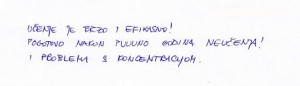 UČENJE JE BRZO I EFIKASNO!
POGOTOVO NAKON PUUUNO GODINA NEUČENJA!
I PROBLEMA S KONCENTRACIJOM.